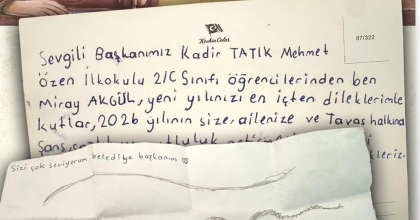 Keskin Color
87/322
Sevgili Başkanımız Kadir TATIK Mehmet
Özen İlkokulu 2/C Sınıfı öğrencilerinden ben
Miray AKGÜL, yeni yılınızı en içten dileklerimle
kutlar, 2026 yılının size, ailenize ve Tavas halkına
Şans,
Sizi çok seviyorum belediye başkanım